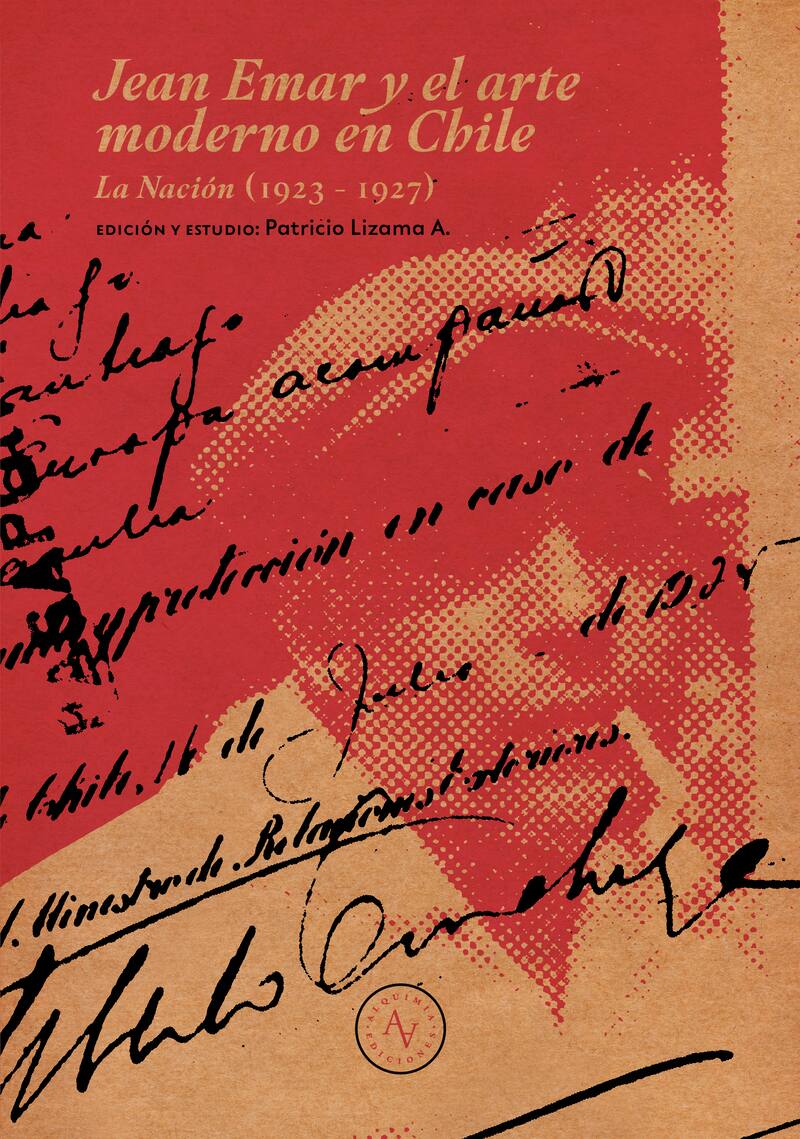 Jean Emar y el arte
moderno en Chile
La Nación (1923 - 1927)
EDICIÓN Y ESTUDIO: Patricio Lizama A.
Europa acompañado
protección en caso de
Chile, 16 de Julio de 192
Ministro de Relaciones Exteriores.
ALQUIMIA
AA
EDICIONES